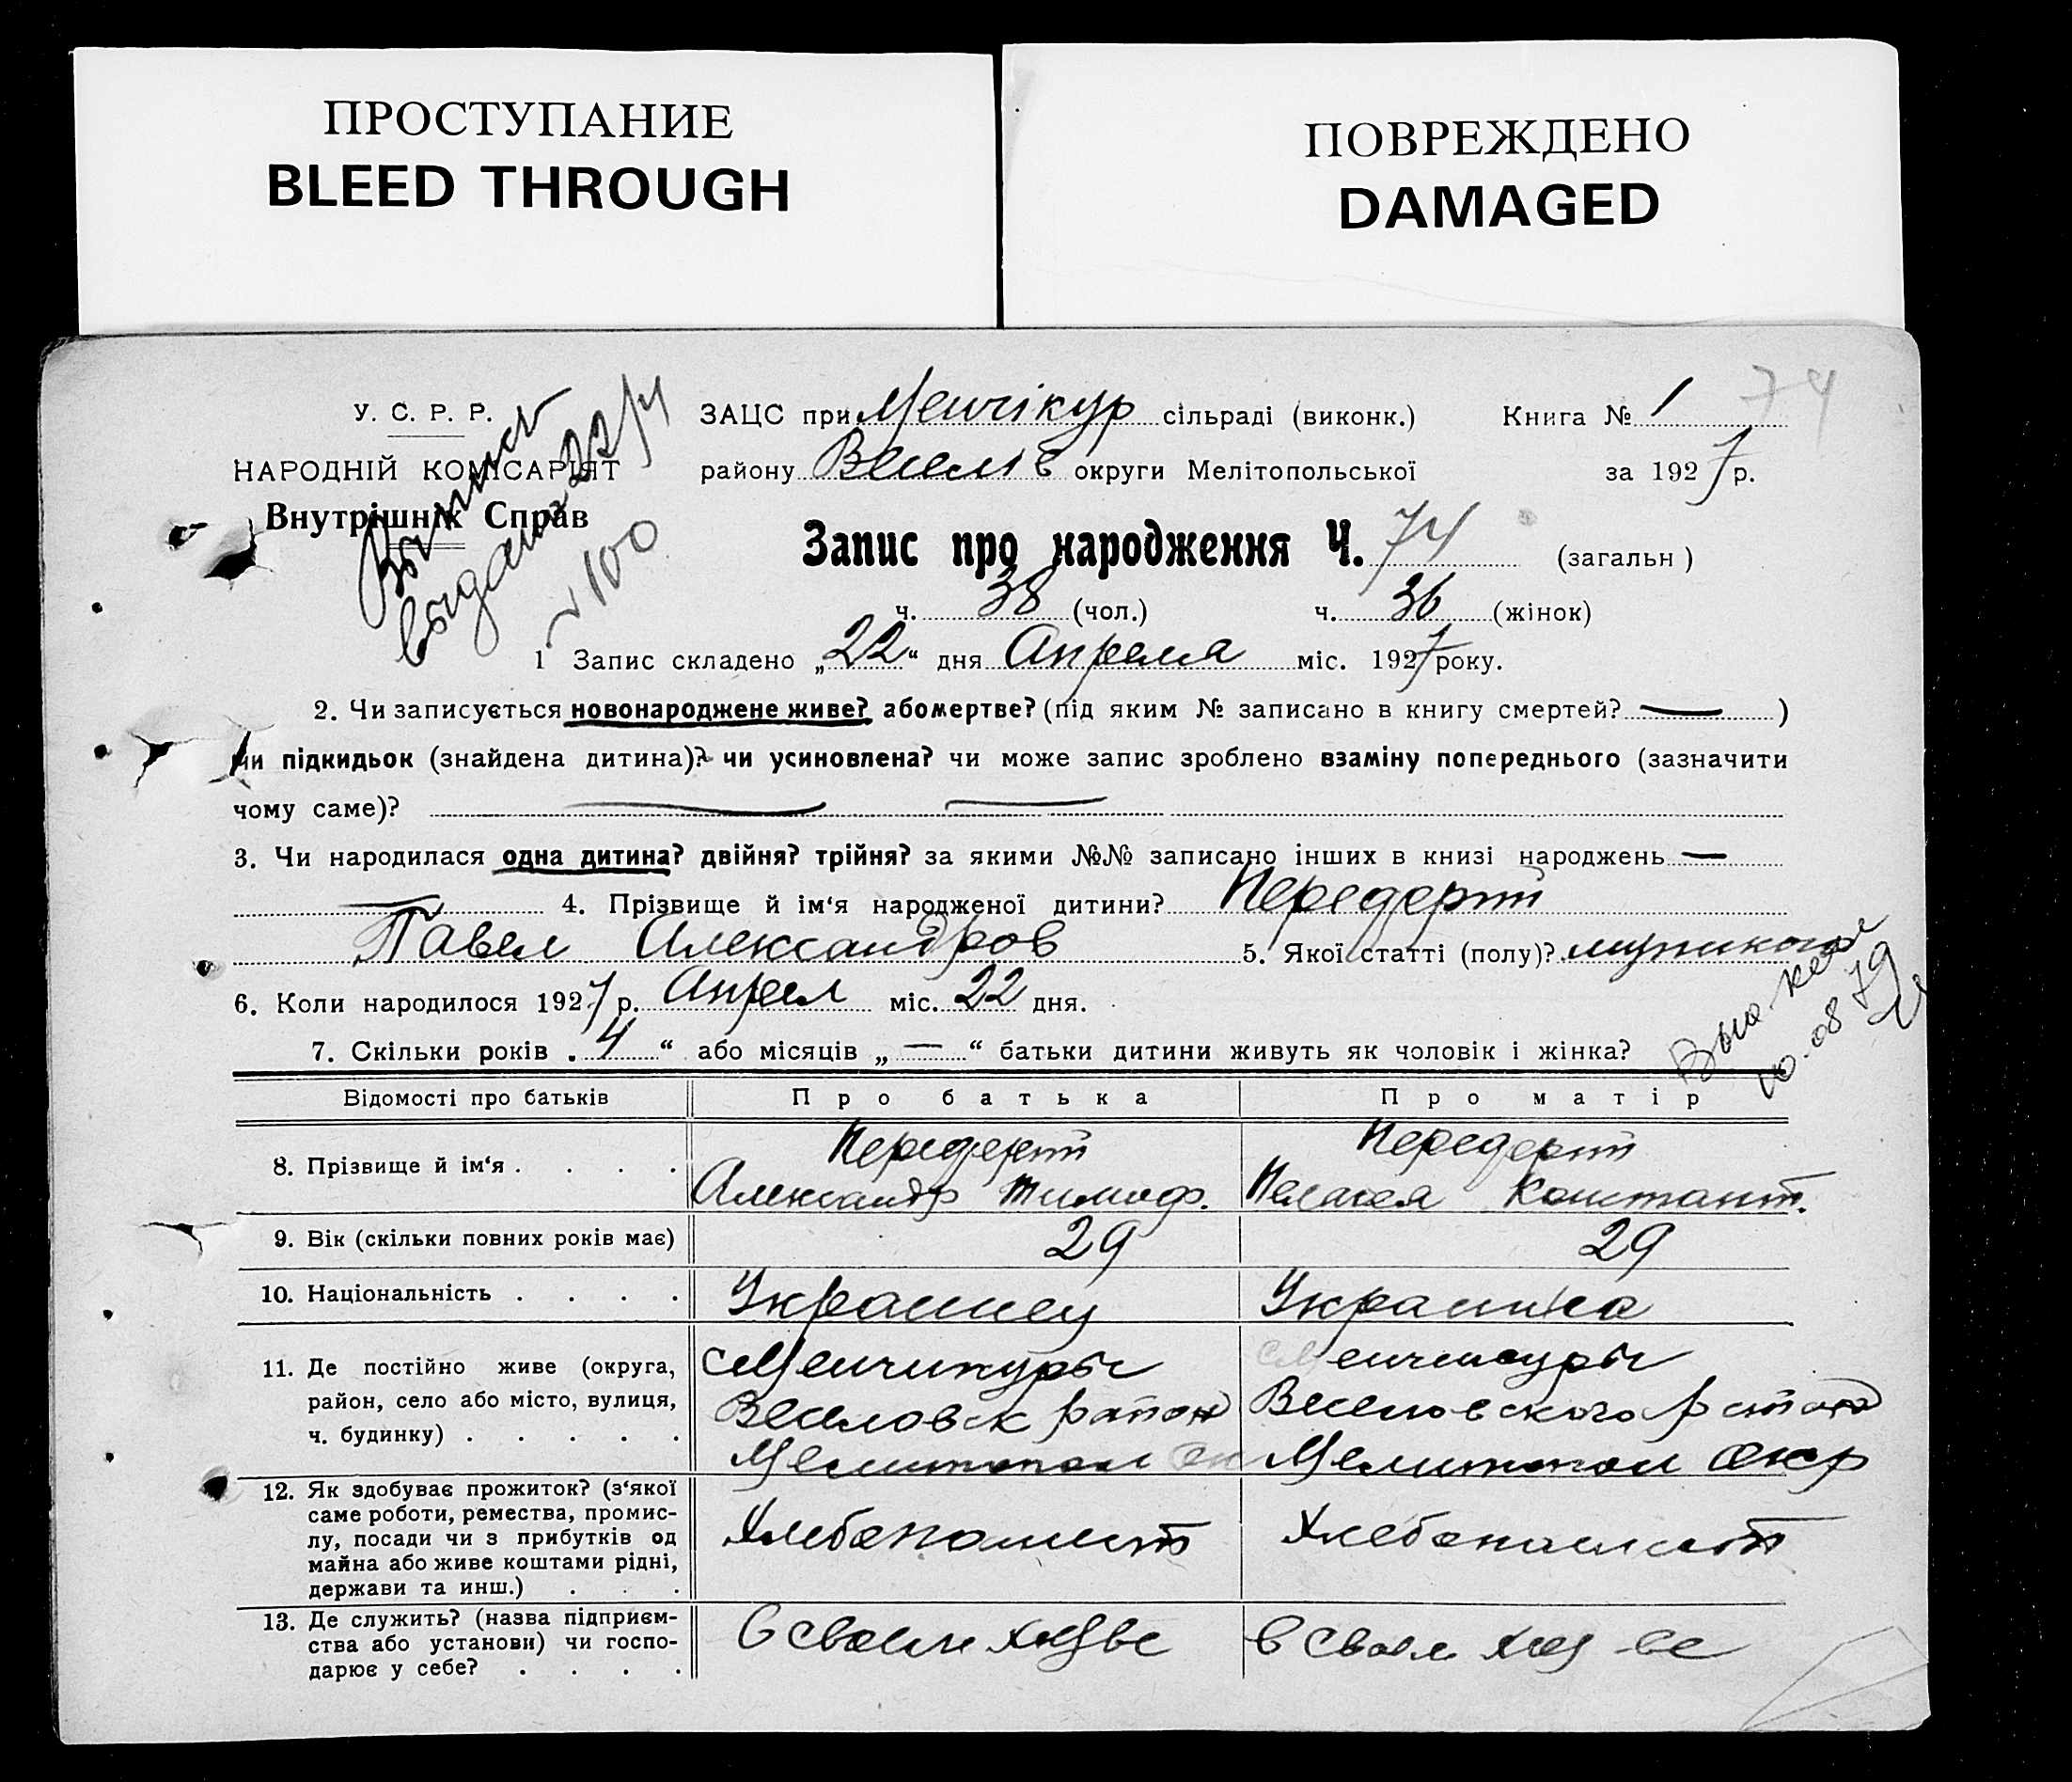 ПРОСТУПАНИЕ
BLEED THROUGH
ПОВРЕЖДЕНО
DAMAGED
У. С. Р. Р.
НАРОДНІЙ КОМІСАРІЯТ
Внутрішніх Справ
Выпись
выдана 22/4
√ 100
ЗАЦС при Менчікур сільраді (виконк.) Книга № 1 74
району Веселів округи Мелітопольської за 1927 р.
Запис про народження Ч. 74 (загальн)
ч. 38 (чол.) ч. 36 (жінок)
1 Запис складено „22“ дня Апреля міс. 1927 року.
2. Чи записується новонароджене живе? або мертве? (під яким № записано в книгу смертей? — )
чи підкидьок (знайдена дитина)? чи усиновлена? чи може запис зроблено взаміну попереднього (зазначити
чому саме)?
3. Чи народилася одна дитина? двійня? трійня? за якими №№ записано інших в книзі народжень —
— 4. Прізвище й ім‘я народженої дитини? Передерій
Павел Александров 5. Якої статті (полу)?
6. Коли народилося 1927 р. Апрел міс. 22 дня.
7. Скільки років „4“ або місяців „—“ батьки дитини живуть як чоловік і жінка?
10.08 79
Відомості про батьків Про батька Про матір
8. Прізвище й ім‘я . . . . Передерій Передерій
Александр Тимоф. Пелагея Констант.
9. Вік (скільки повних років має) 29 29
10. Національність . . . . Украинец Украинка
11. Де постійно живе (округа, Менчикуры Менчикуры
район, село або місто, вулиця, Веселовск район Веселовского района
ч. будинку) . . . . . Мелитопол ок Мелитопол окр
12. Як здобуває прожиток? (з‘якої
саме роботи, ремества, промис-
лу, посади чи з прибутків од Хлебопашест Хлебопашест
майна або живе коштами рідні,
держави та инш.) . . .
13. Де служить? (назва підприєм- в своем хозве в своем хоз-ве
ства або установи) чи госпо-
дарює у себе? . . . .